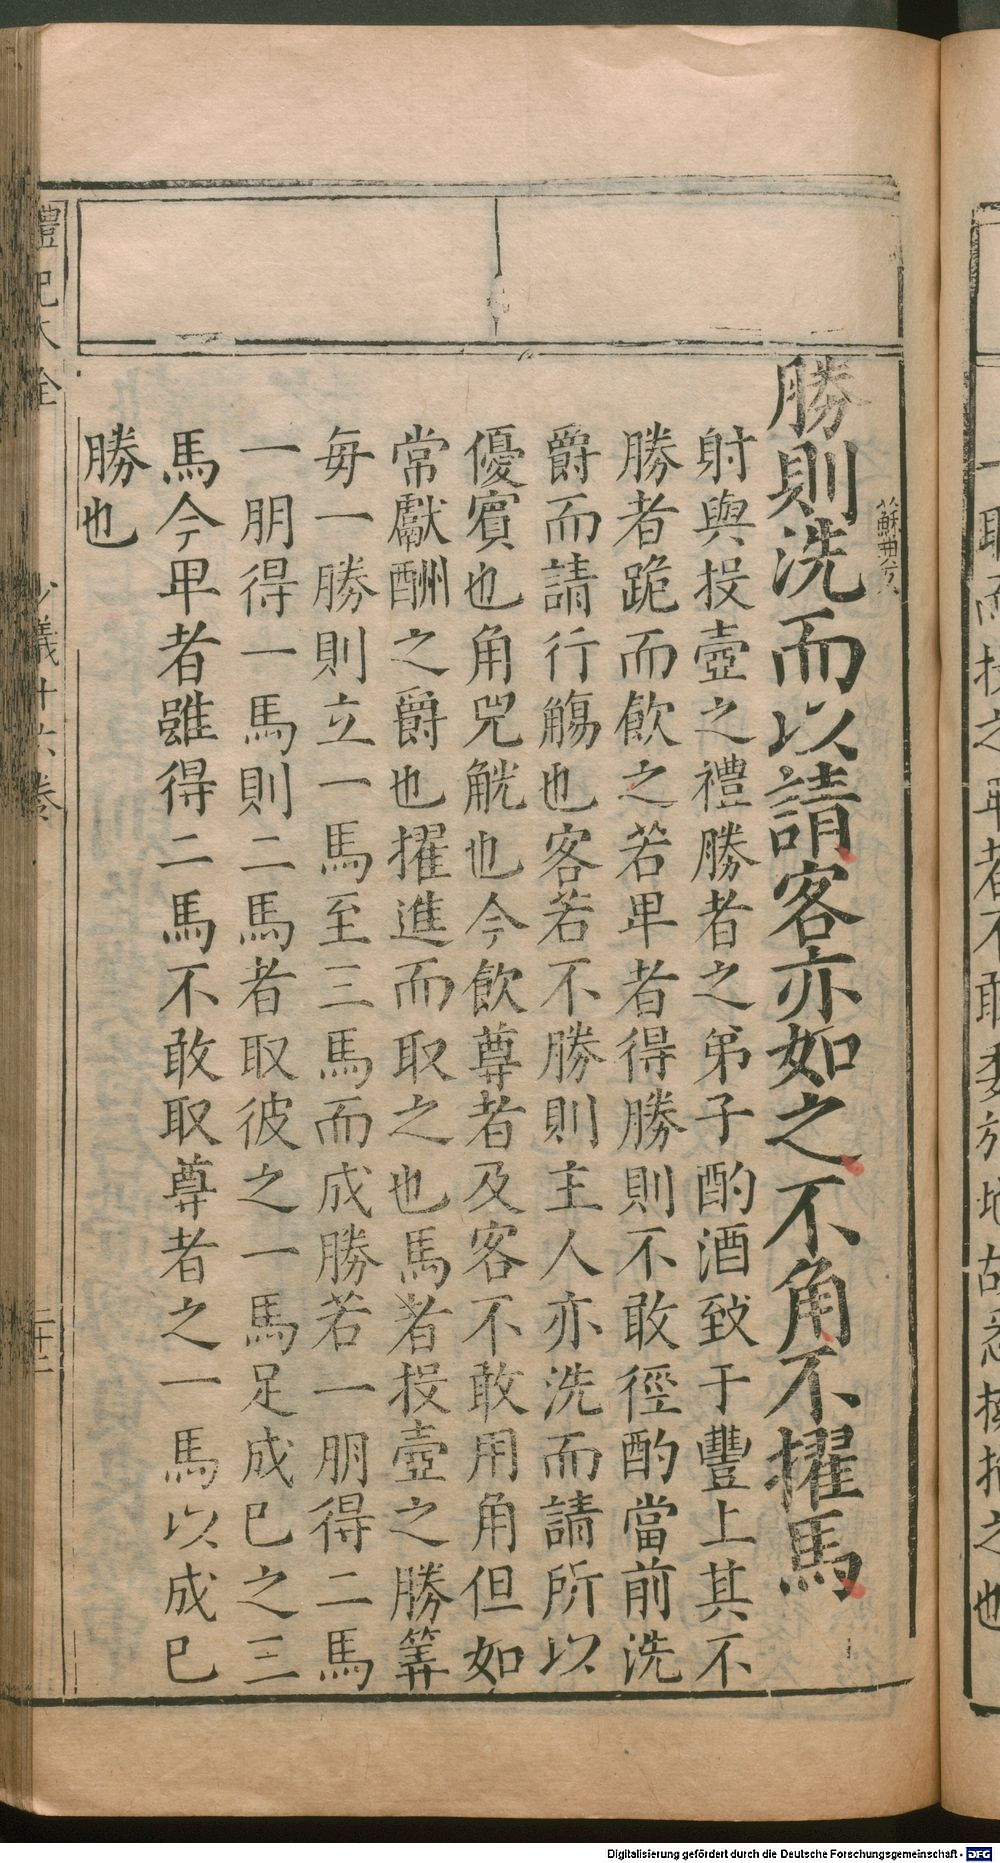 勝則洗而以請客亦如之不角不擢馬
射與投壺之禮勝者之弟子酌酒致于豐上其不
勝者跪而飲之若卑者得勝則不敢徑酌當前洗
爵而請行觴也客若不勝則主人亦洗而請所以
優賓也角兕觥也今飲尊者及客不敢用角但如
常獻酬之爵也擢進而取之也馬者投壺之勝筭
每一勝則立一馬至三馬而成勝若一朋得二馬
一朋得一馬則二馬者取彼之一馬足成已之三
馬今卑者雖得二馬不敢取尊者之一馬以成已
勝也
禮記大全
少儀十六卷
二十二
Digitalisierung gefördert durch die Deutsche Forschungsgemeinschaft - DFG